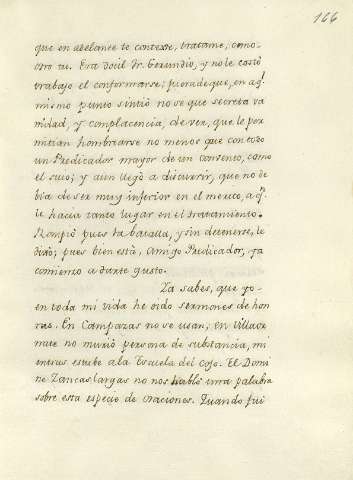 166
que en adelante te contexte, tratame, como
otro tu. Era docil Fr. Gerundio, y no le costò
trabajo el conformarse; fuera de que, en aql.
mismo punto sintiò no se que secreta va
nidad, y complacencia, de ver, que le per
mitian hombrearse no menos que con todo
un Predicador mayor de un convento, como
el suio; y aun llegò a discurrir, que no de
bia de ser muy inferior en el merito, a qn.
se hacia tanto lugar en el tratamiento.
Rompiò pues la batalla, y sin detenerse, le
dixo; pues bien està, Amigo Predicador, ya
comienzo a darte gusto.
Ya sabes, que yo
en toda mi vida he oido sermones de hon
ras. En Campazas no se usan; en Villaor
nate no muriò persona de substancia, mi
entras estube a la Escuela del Cojo. El Domi
ne Zancas largas no nos hablò una palabra
sobre esta especie de oraciones. Quando fui